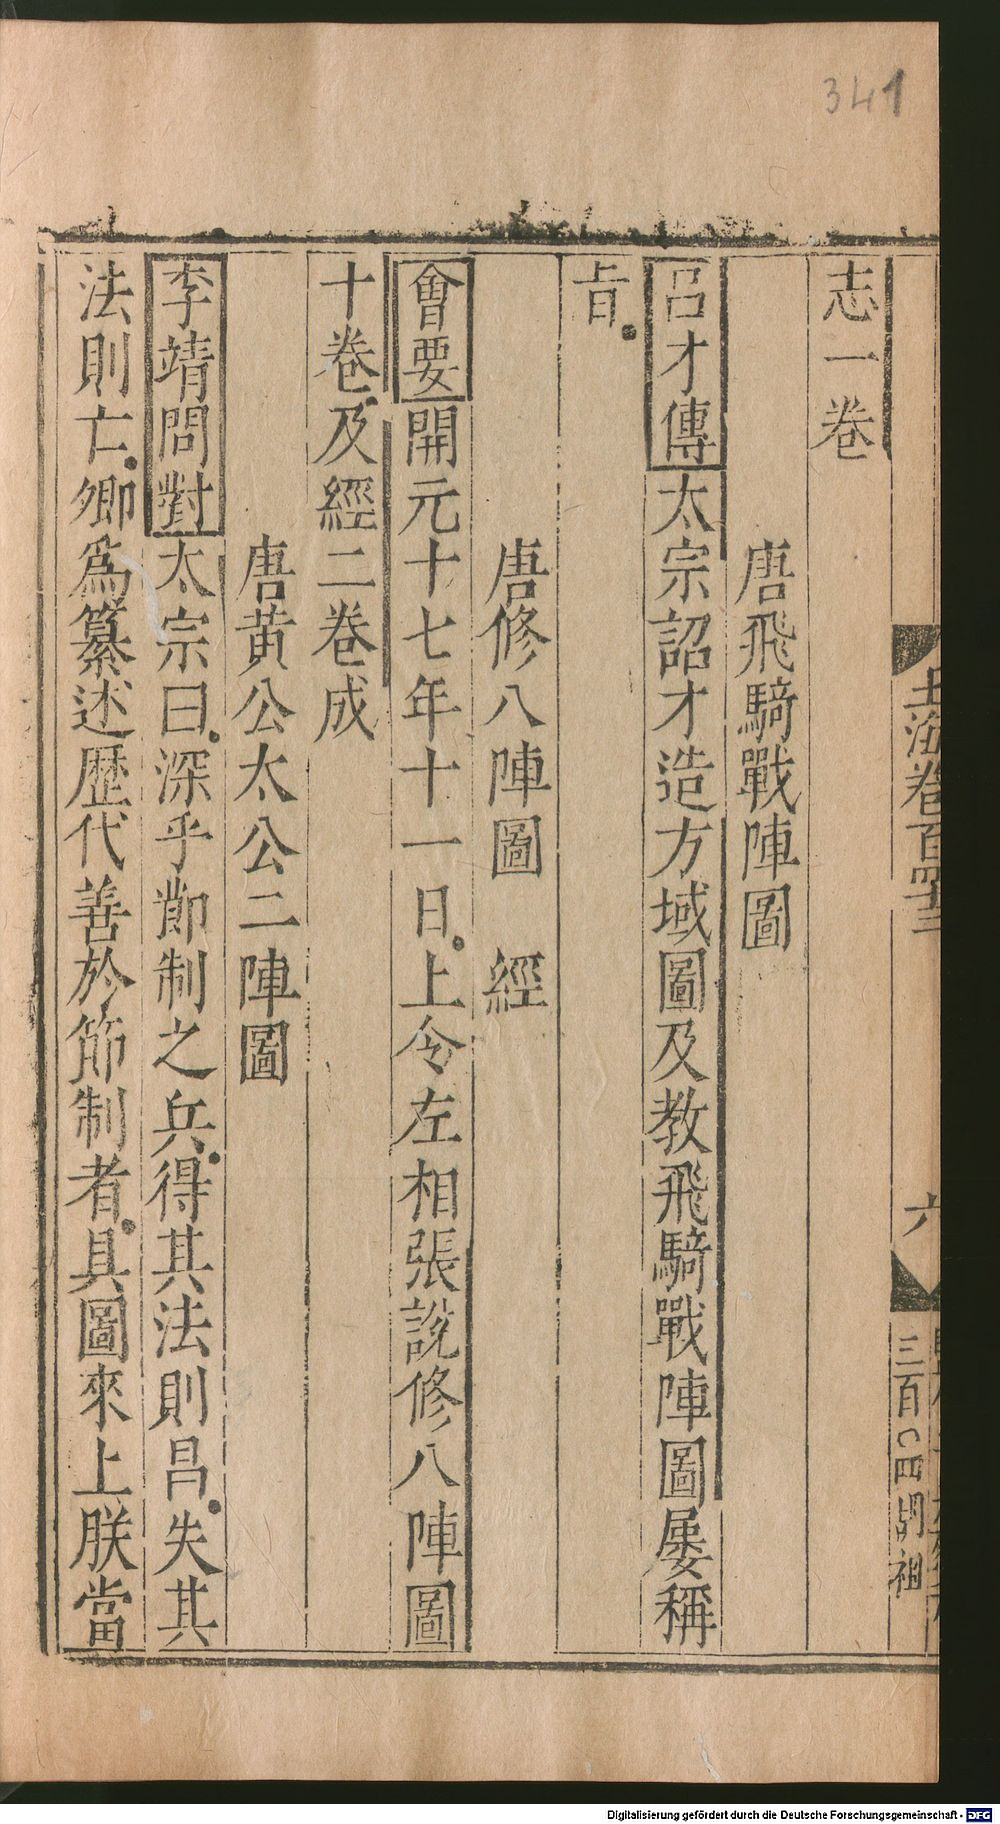 341
志一卷
唐飛騎戰陣圖
呂才傳太宗詔才造方域圖及教飛騎戰陣圖屢稱
旨
唐修八陣圖 經
會要開元十七年十一日上令左相張說修八陣圖
十卷及經二卷成
唐黃公太公二陣圖
李靖問對太宗曰深乎節制之兵得其法則昌失其
法則亡卿爲纂述歷代善於節制者具圖來上朕當
玉海卷百四十三
六
三百〇四 胡祖
Digitalisierung gefördert durch die Deutsche Forschungsgemeinschaft - DFG